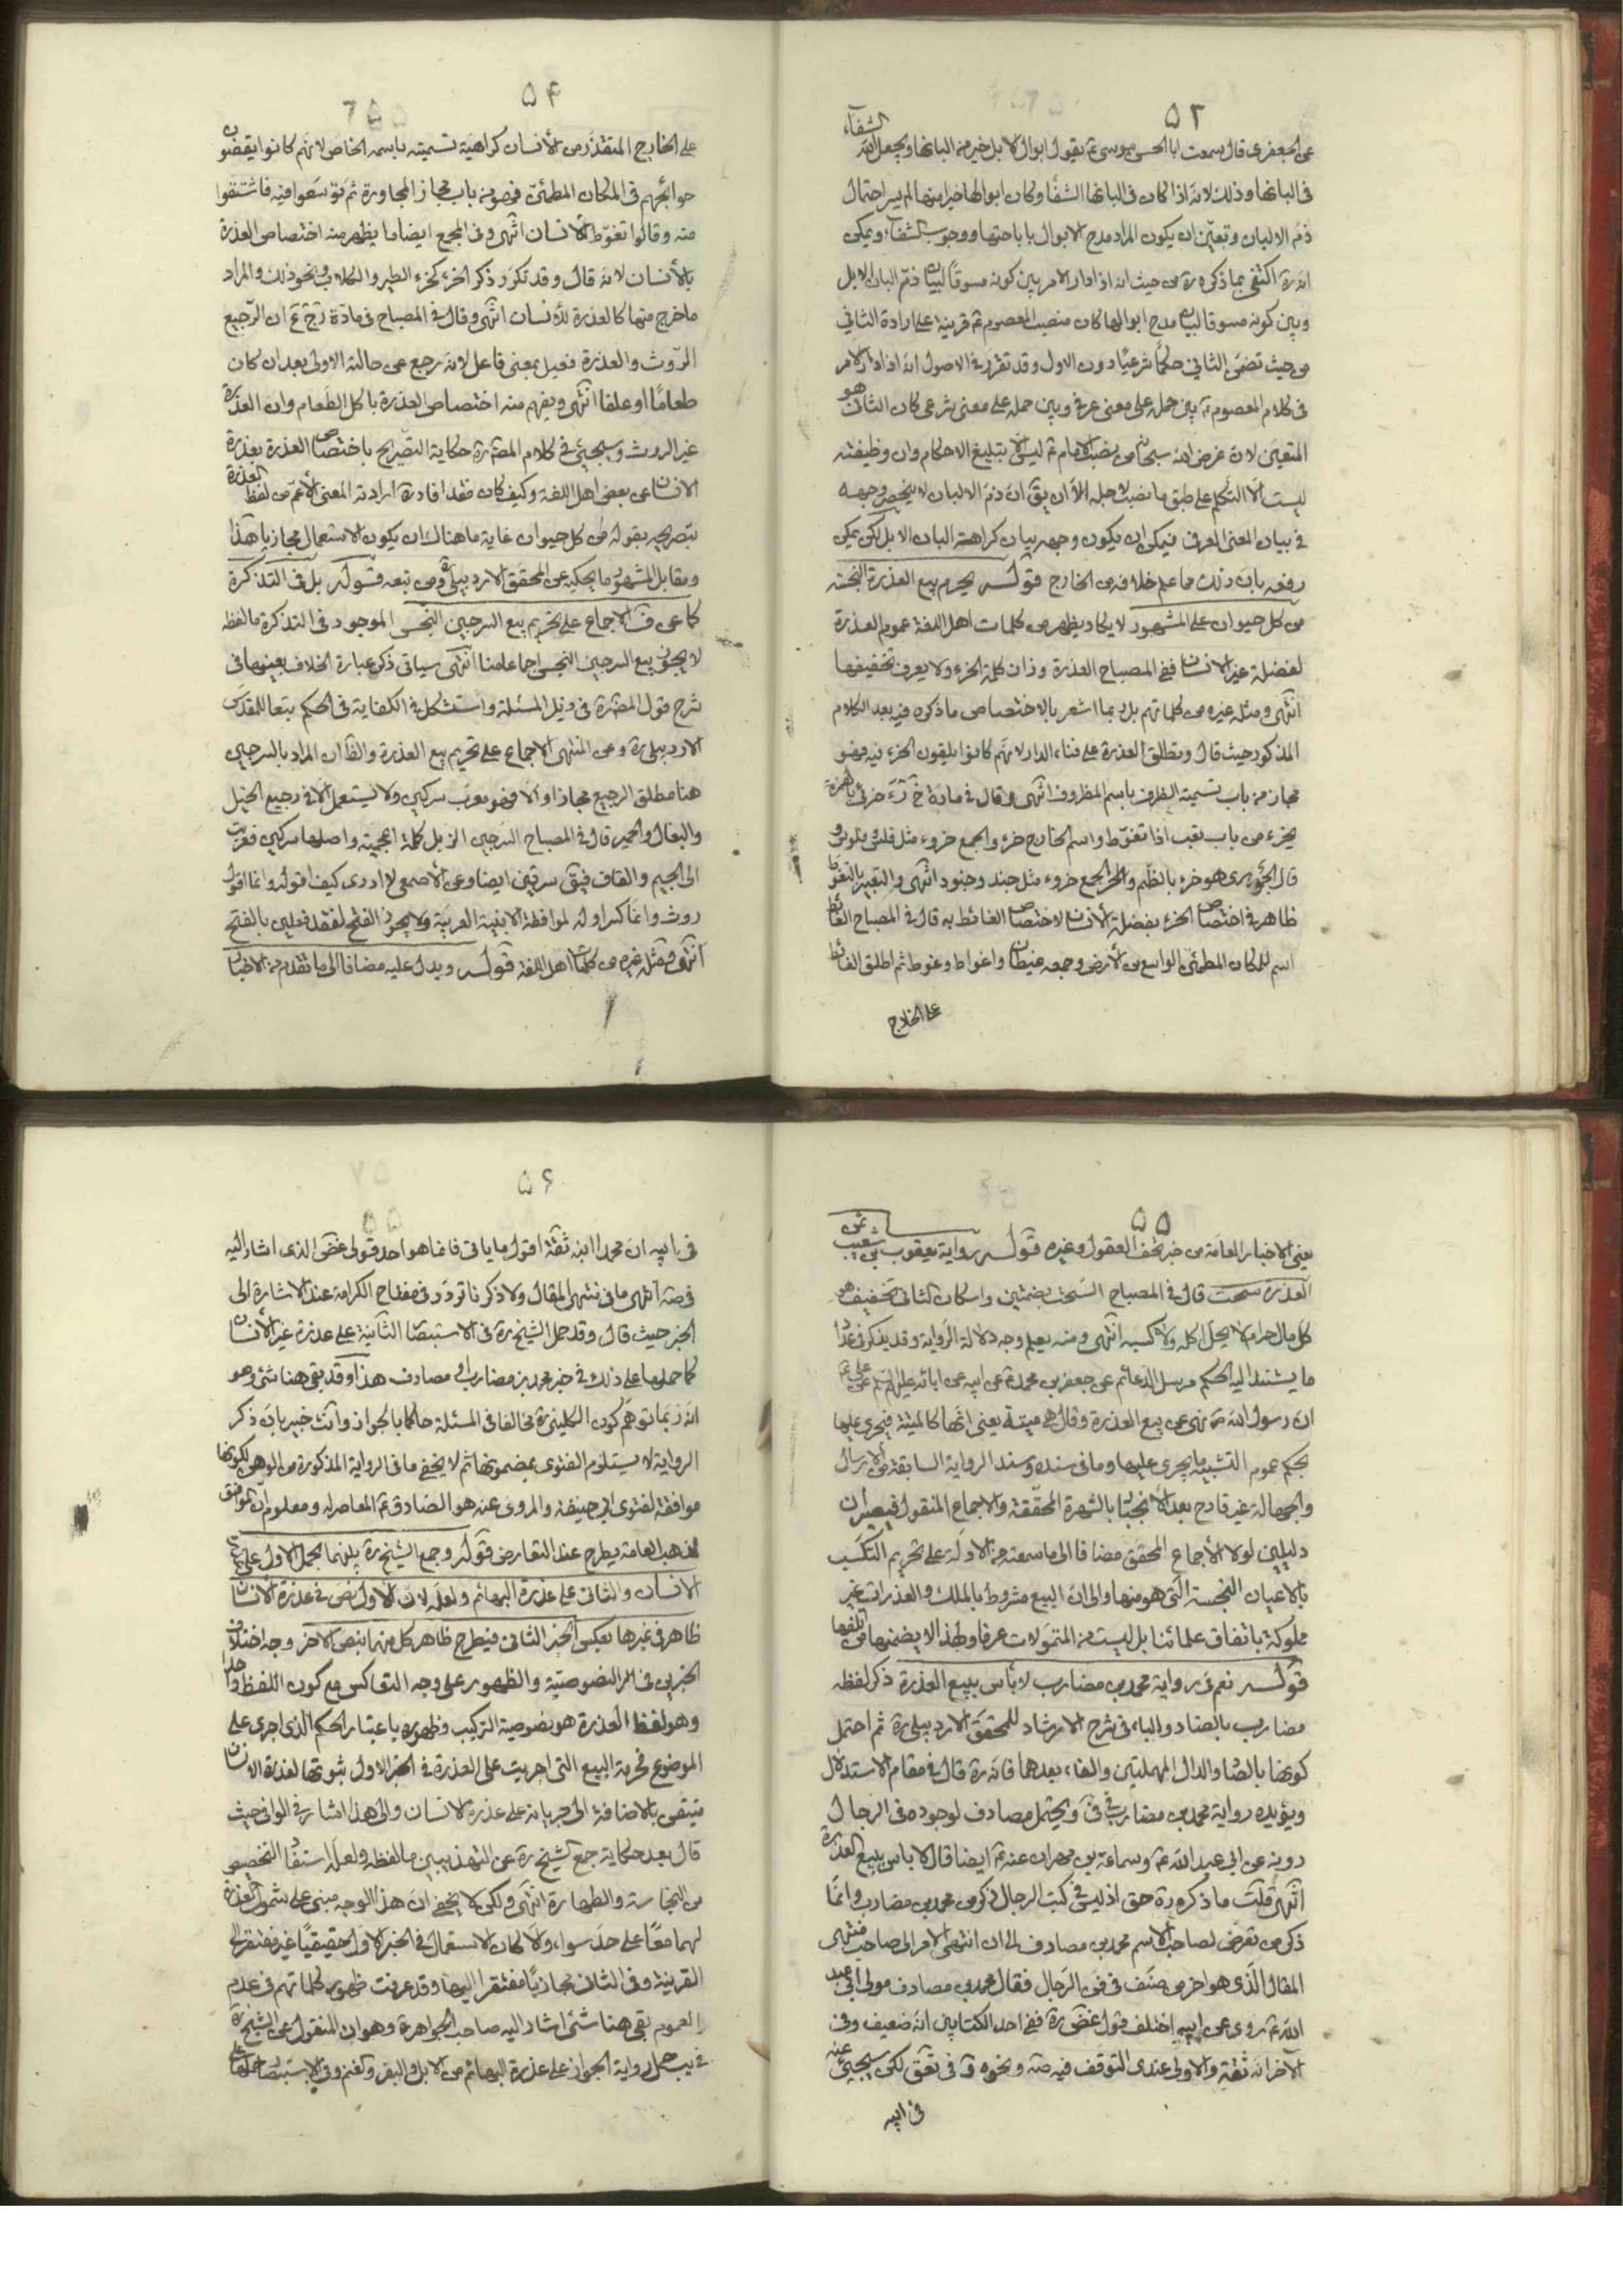 ۵۳
الشفاء
عن الجعفرى قال سمعت ابا الحسن موسى ع يقول ابوال الابل خير من البانها ويجعل الله
فى البانها وذلك لانه اذا كان فى البانها الشفاء وكان ابوالها خيرا منها لم يسر احتمال
ذم الالبان وتعين ان يكون المراد مدح الابوال باباحتها ووجوب الشفاء ويمكن
انه ره اكتفى بما ذكره ره من حيث انه اذا دار الامر بين كونه مسوقا لبيان ذم البان الابل
وبين كونه مسوقا لبيان مدح ابوالها كان منصب المعصوم ع قرينة على ارادة الثاني
من حيث تضمن الثاني حكما شرعيا دون الاول وقد تقرر فى الاصول انه اذا دار الامر
فى كلام المعصوم ع بين حمله على معنى عرفى وبين حمله على معنى شرعى كان الثانى هو
المتعين لان غرض الله سبحانه من نصب الامام ع ليس الا بتبليغ الاحكام وان وظيفته
ليست الا التكلم على طبق ما نصب لاجله الا ان يق ان ذم الالبان لا ينحصر وجهه
فى بيان المعنى العرفى فيمكن ان يكون وجهه بيان كراهة البان الابل لكن يمكن
رفعه بان ذلك مما علم خلافه من الخارج قوله يحرم بيع العذرة النجسة
من كل حيوان على المشهور لا يكاد يظهر من كلمات اهل اللغة عموم العذرة
لفضلة غير الانسان ففى المصباح العذرة وزان كلمة الخرء ولا يعرف تخفيفها
انتهى ومثله غيره من كلماتهم بل ربما اشعر بالاختصاص ما ذكره فيه بعد الكلام
المذكور حيث قال وتطلق العذرة على فناء الدار لانهم كانوا يلقون الخرء فيه فهو
مجاز من باب تسمية الظرف باسم المظروف انتهى وقال فى مادة خ ر ء خرئ بالهمزة
يخرء من باب تعب اذا تغوط واسم الخارج خرء والجمع خروء مثل فلس وفلوس و
قال الجوهرى هو خرء بالضم والجمع خروء مثل جند وجنود انتهى والتعبير بالتغوط
ظاهر فى اختصاص الخرء بفضلة الانسان لاختصاص الغائط به قال فى المصباح الغائط
اسم للمكان المطمئن الواسع من الارض وجمعه غيطان واغواط وغوط ثم اطلق الغائط
على الخارج
۵۴
على الخارج المتقذر من الانسان كراهية تسميته باسمه الخاص لانهم كانوا يقضون
حوائجهم فى المكان المطمئن فهو من باب مجاز المجاورة ثم توسعوا فيه فاشتقوا
منه وقالوا تغوط الانسان انتهى وفى المجمع ايضا ما يظهر منه اختصاص العذرة
بالانسان لانه قال وقد تكرر ذكر الخرء كخرء الطير والكلاب ونحو ذلك والمراد
ما خرج منها كالعذرة للانسان انتهى وقال فى المصباح فى مادة رجع ان الرجيع
الروث والعذرة فعيل بمعنى فاعل لانه رجع عن حالته الاولى بعد ان كان
طعاما او علفا انتهى ويفهم منه اختصاص العذرة باكل الطعام وان العذرة
غير الروث وسيجئ فى كلام المصنف ره حكاية التصريح باختصاص العذرة بعذرة
الانسان عن بعض اهل اللغة وكيف كان فقد افاد ره ارادته المعنى الاعم من لفظ العذرة
بتصريحه بقوله من كل حيوان غاية ما هناك ان يكون الاستعمال مجازيا هذا
ومقابل المشهور ما يحكيه عن المحقق الاردبيلى ره ومن تبعه قوله بل فى التذكرة
كما عن ف الاجماع على تحريم بيع السرجين النجس الموجود فى التذكرة ما لفظه
لا يجوز بيع السرجين النجس اجماعا منا انتهى سياتى ذكر عبارة الخلاف بعينها فى
شرح قول المصنف ره فى ذيل المسئلة واستشكل فى الكفاية فى الحكم تبعا للمقدس
الاردبيلى ره وعن المنتهى الاجماع على تحريم بيع العذرة والظ ان المراد بالسرجين
هنا مطلق الرجيع مجازا والا فهو معرب سركين ولا يستعمل الا فى رجيع الخيل
والبغال والحمير قال فى المصباح السرجين الزبل كلمة اعجمية واصلها سركين فعربت
الى الجيم والقاف فيق سرقين ايضا وعن الاصمعى لا ادرى كيف اقوله وانما اقول
روث وانما كسر اوله لموافقة الابنية العربية ولا يجوز الفتح لفقد فعلين بالفتح
انتهى ومثله غيره من كلمات اهل اللغة قوله ويدل عليه مضافا الى ما تقدم من الاخبار
۵۵
يعنى الاخبار العامة من خبر تحف العقول وغيره قوله رواية يعقوب بن شعيب ثمن
العذرة سحت قال فى المصباح السحت بضمتين واسكان الثانى تخفيف هو
كل مال حرام لا يحل اكله ولا كسبه انتهى ومنه يعلم وجه دلالة الرواية وقد يذكر فى عداد
ما يستند اليه الحكم مرسل الدعائم عن جعفر بن محمد ع عن ابيه عن ابائه عليهم السلم عن على ع
ان رسول الله ص نهى عن بيع العذرة وقال هى ميتة يعنى انها كالميتة فيجرى عليها
بحكم عموم التشبيه ما يجرى عليها وما فى سنده وسند الرواية السابقة من الارسال
والجهالة غير قادح بعد الانجبار بالشهرة المحققة والاجماع المنقول فيصيران
دليلين لولا الاجماع المحقق مضافا الى ما سمعته من الادلة على تحريم التكسب
بالاعيان النجسة التى هو منها والى ان البيع مشروط بالملك والعذرات غير
مملوكة باتفاق علمائنا بل ليست من المتمولات عرفا ولهذا لا يضمنها من اتلفها
قوله نعم فى رواية محمد بن مضارب لا بأس ببيع العذرة ذكر لفظه
مضارب بالضاد والباء فى شرح الارشاد للمحقق الاردبيلى ره ثم احتمل
كونها بالصاد والدال المهملتين والفاء بعدهما فانه ره قال فى مقام الاستدلال
ويؤيده رواية محمد بن مضارب فى فى ويحتمل مصادف لوجوده فى الرجال
رويه عن ابى عبد الله ع وسماعة بن مهران عنه ع ايضا قال لا باس ببيع العذرة
انتهى قلت ما ذكره ره حق اذ ليس فى كتب الرجال ذكر من محمد بن مضارب وانما
ذكر من تعرض لصاحب الاسم محمد بن مصادف الى ان انتهى الامر الى صاحب منتهى
المقال الذى هو اخر من صنف فى فن الرجال فقال محمد بن مصادف مولى ابى عبد
الله ع روى عن ابيه اختلف قول غض ره ففى احد الكتابين انه ضعيف وفى
الاخر انه ثقة والاولى عندى التوقف فيه صه ونحوه د فى تعق لكن سيجئ عنه
فى ابيه
۵۶
فى ابيه ان محمدا ابنه ثقة اقول ما ياتى فانما هو احد قولى غض الذى اشار اليه
فى صه انتهى ما فى منتهى المقال ولا ذكرنا تردد فى مفتاح الكرامة عند الاشارة الى
الخبر حيث قال وقد حمل الشيخ ره فى الاستبصار الثانية على عذرة غير الانسان
كما حملها على ذلك فى خبر محمد بن مضارب او مصادف هذا وقد بقى هنا شئ وهو
انه ربما توهم كون الكلينى ره مخالفا فى المسئلة حاكما بالجواز وانت خبير بان ذكر
الرواية لا يستلزم الفتوى بمضمونها ثم لا يخفى ما فى الرواية المذكورة من الوهن لكونها
موافقة لفتوى ابى حنيفة والمروى عنه هو الصادق ع المعاصر له ومعلوم ان الموافق
لمذهب العامة يطرح عند التعارض قوله وجمع الشيخ ره بينهما بحمل الاول على عذرة
الانسان والثانى على عذرة البهائم ولعله لان الاول نص فى عذرة الانسان
ظاهر فى غيرها بعكس الخبر الثانى فيطرح ظاهر كل منهما بنص الاخر وجه اختلاف
الخبرين فى النصوصية والظهور على وجه التعاكس مع كون اللفظ واحدا
وهو لفظ العذرة هو نصوصية التركيب وظهوره باعتبار الحكم الذى اجرى على
الموضوع فحرمة البيع التى اجريت على العذرة فى الخبر الاول ثبوتها لعذرة الانسان
متيقن بالاضافة الى جريانه على عذرة الانسان والى هذا اشار فى الوافى حيث
قال بعد حكاية جمع الشيخ ره عن التهذيبين ما لفظه ولعله استفاد التخصيص
من النجاسة والطهارة انتهى ولكن لا يخفى ان هذا الوجه مبنى على شمول العذرة
لهما معا على حد سواء والا لكان الاستعمال فى الخبر الاول حقيقيا غير مفتقر الى
القرينة وفى الثانى مجازيا مفتقرا اليها وقد عرفت ظهور كلماتهم فى عدم
العموم بقى هنا شئ اشار اليه صاحب الجواهر ره وهو ان المنقول عن الشيخ ره
فى يب حمل رواية الجواز على عذرة البهائم من الابل والبقر والغنم وفى الاستبصار حملها على